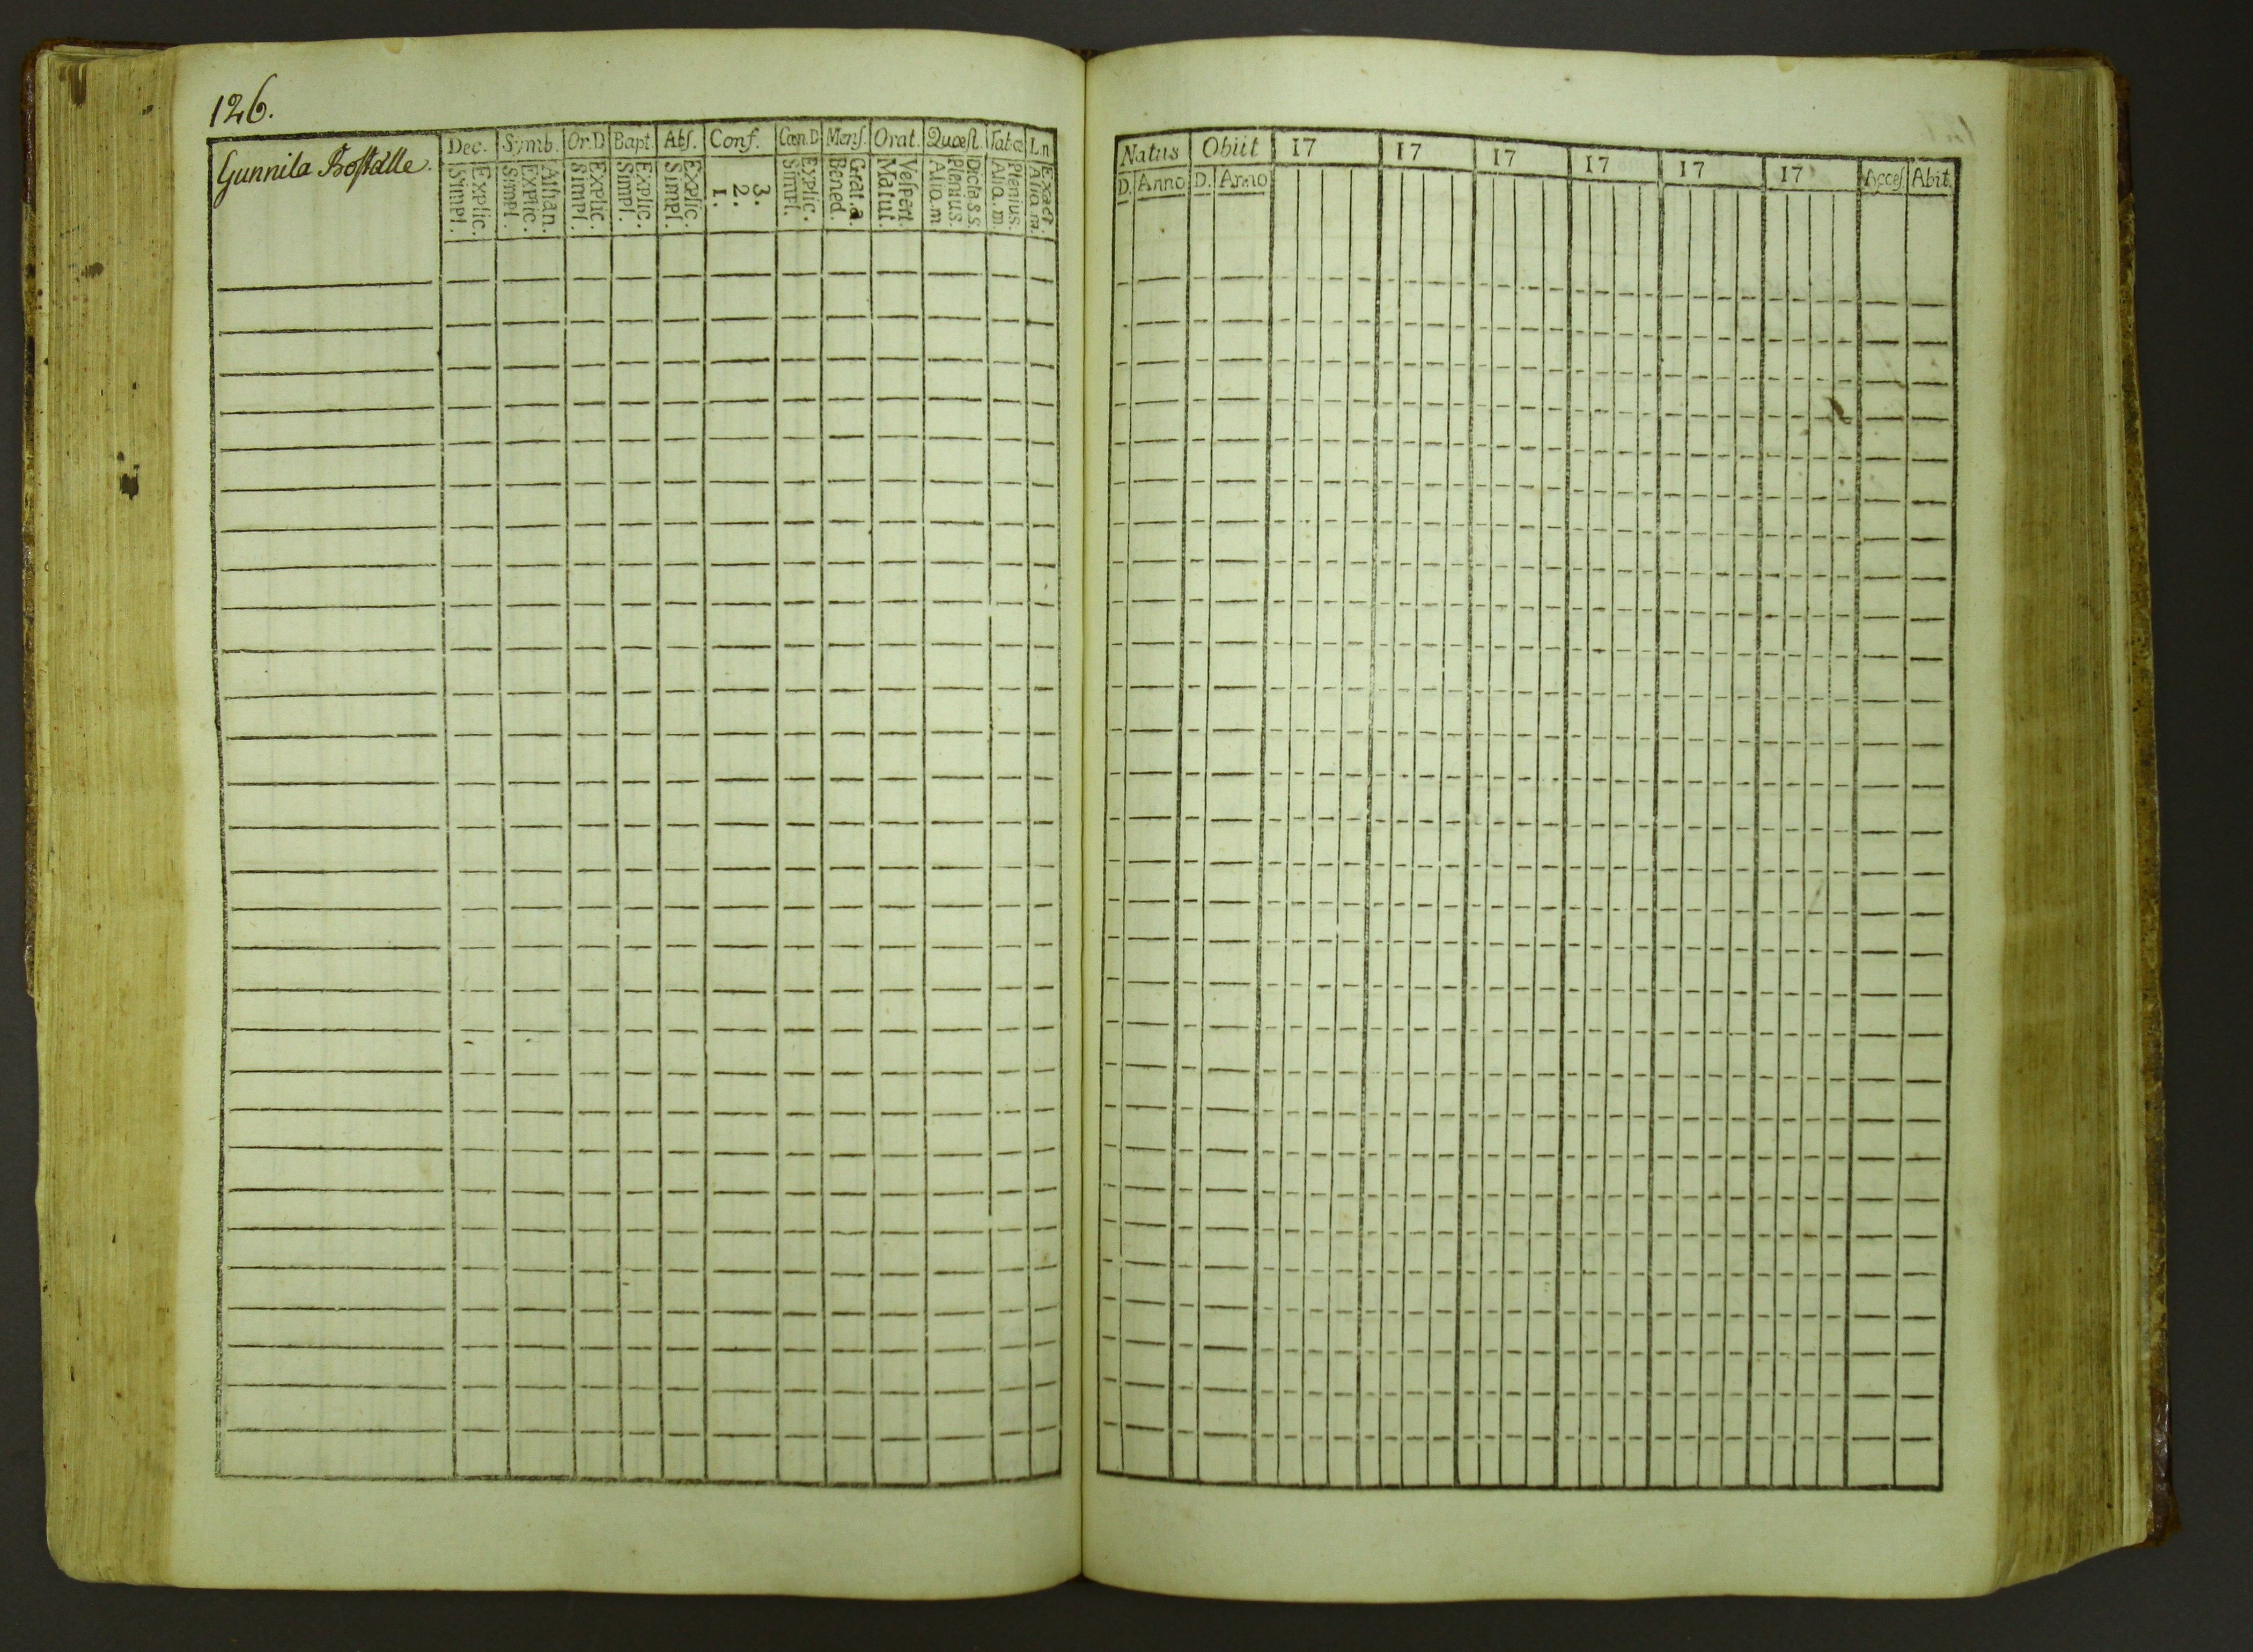 126.
Gunnila Boställe.
Dec. Symb. Or.D Bapt. Abſ. Conf. Cœn.D Menſ. Orat. Quæſt. Tab.œ L.n
Explic.
Simpl.
Athan.
Explic.
Simpl.
Explic.
Simpl.
Explic.
Simpl.
Explic.
Simpl.
3.
2.
1.
Explic.
Simpl.
Grat.a.
Bened.
Veſpert.
Matut.
Dicta s s.
Plenius.
Aliq.m
Plenius.
Aliq.m
Exact.
Aliq.m
Natus Obiit 17 17 17 17 17 17 Acceſ. Abit.
D. Anno D. Anno